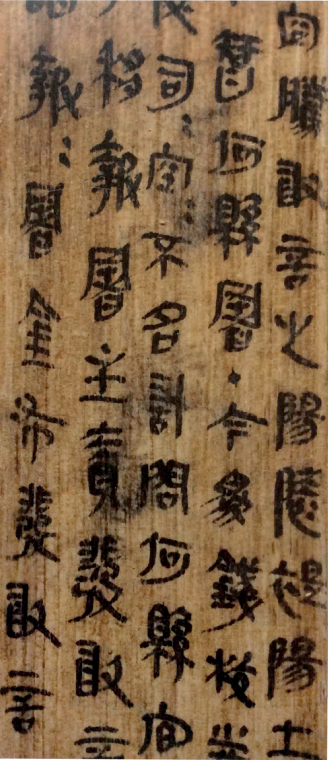 空騰敢言之陽陵禔陽上
智何縣署·今為錢校券
司=空=不名計問何縣官
移報署主責發敢言
報=署金布發敢言